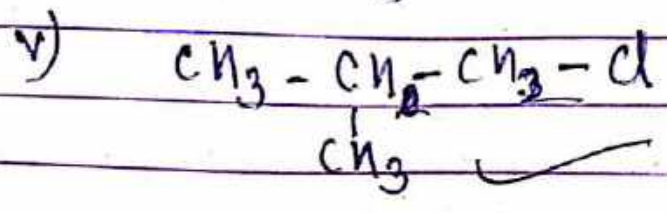 v) CH3 - CH2 - CH3 - Cl
CH3